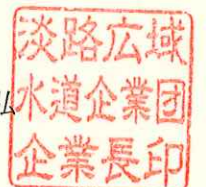 淡路広域
水道企業団
企業長印